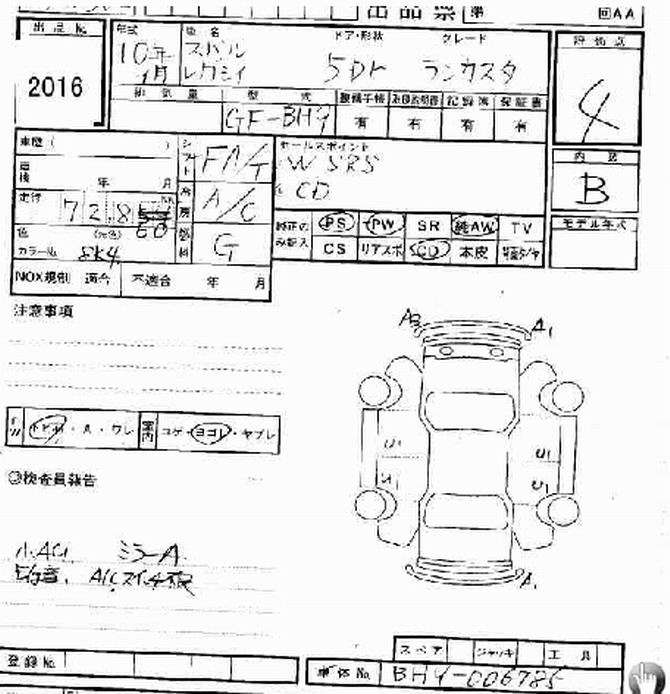 出品票 第 回AA
出品No. 年式 車名 ドア・形状 グレード 評価点
2016 10年 スバル レガシィ 5Dr ランカスタ 4
排気量 型式 整備手帳 取扱説明書 記録簿 保証書
GF-BH9 有 有 有 有
車歴( ) シフト FA/T セールスポイント 内装
車検 年 月 W SRS B
走行 72.8 冷房 A/C CD モデル年式
色 (元色) 60 純正のみ記入 PS PW SR 純AW TV
カラーNo. 8K4 燃料 G CS リアスポ CD 本皮
NOX規制 適合 不適合 年 月
注意事項
A1
U1 U1
U1 U1
・A・ワレ 室内 コゲ・ヨゴレ・ヤブレ
検査員報告
小AU ミラーA
A/Cスイッチ
A1
スペア ジャッキ 工具
登録No. 車体No. BH9-006785